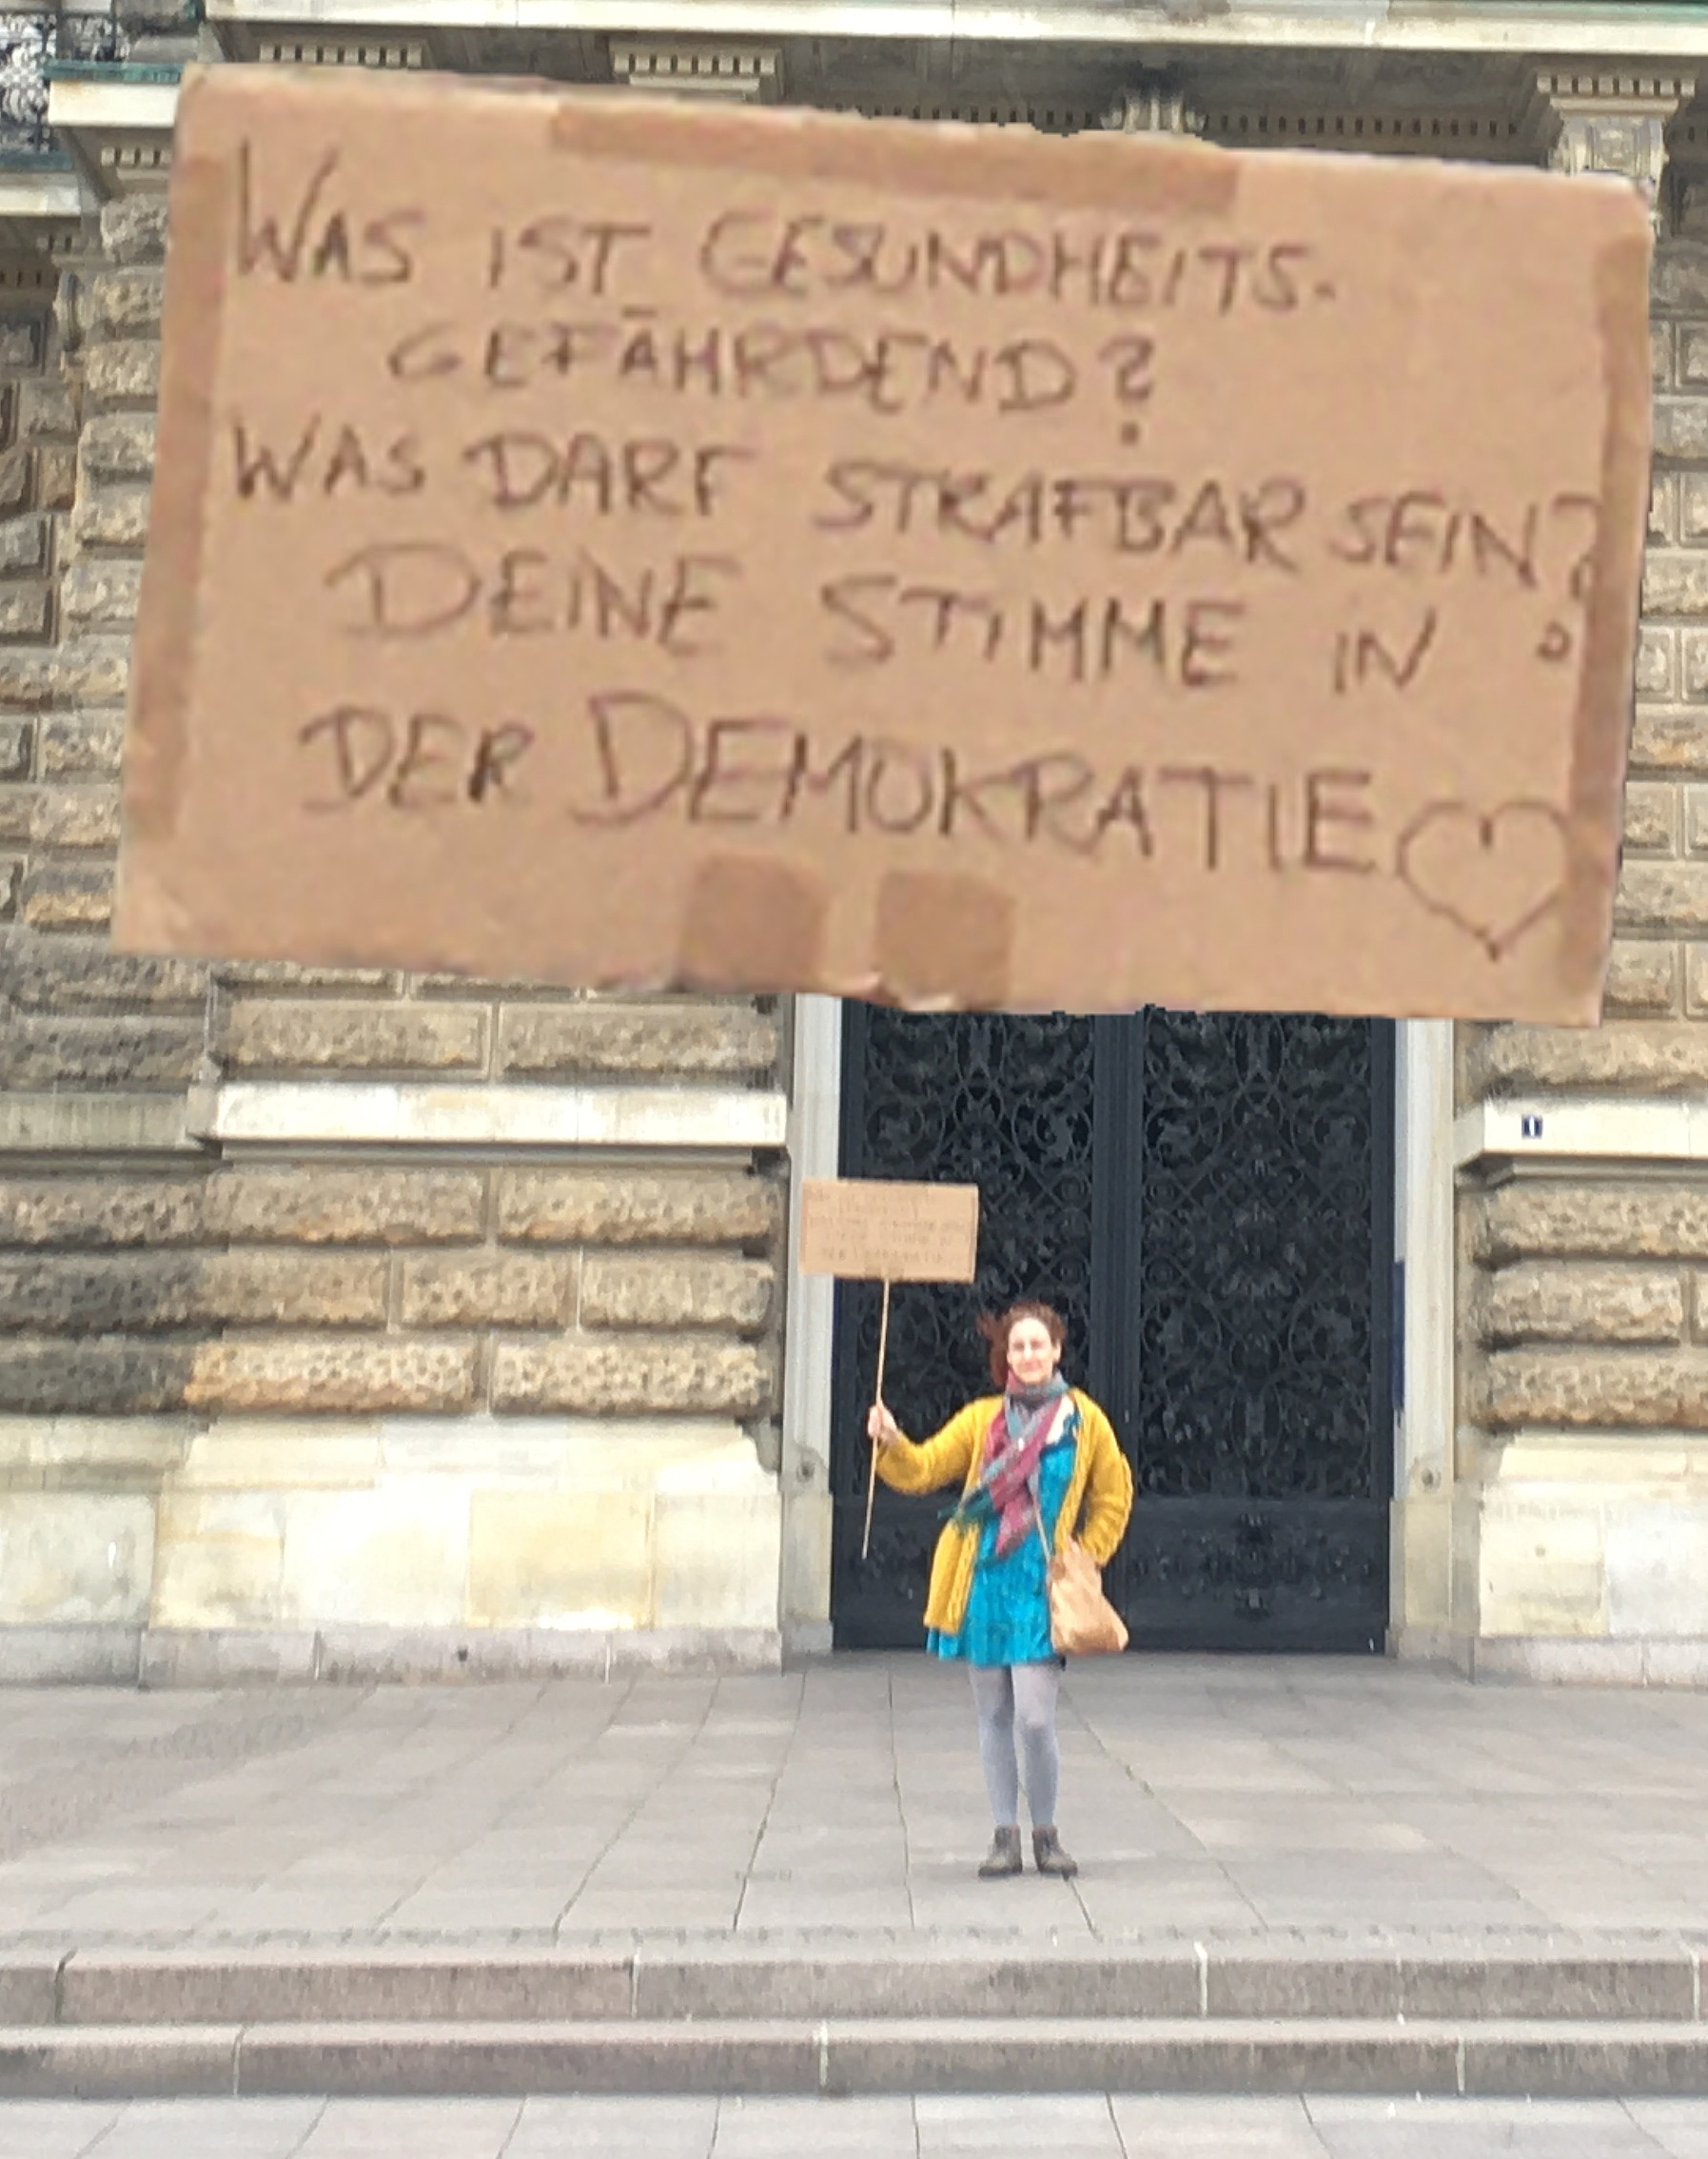 WAS IST GESUNDHEITS-
GEFÄHRDEND?
WAS DARF STRAFBAR SEIN?
DEINE STIMME IN
DER DEMOKRATIE
1